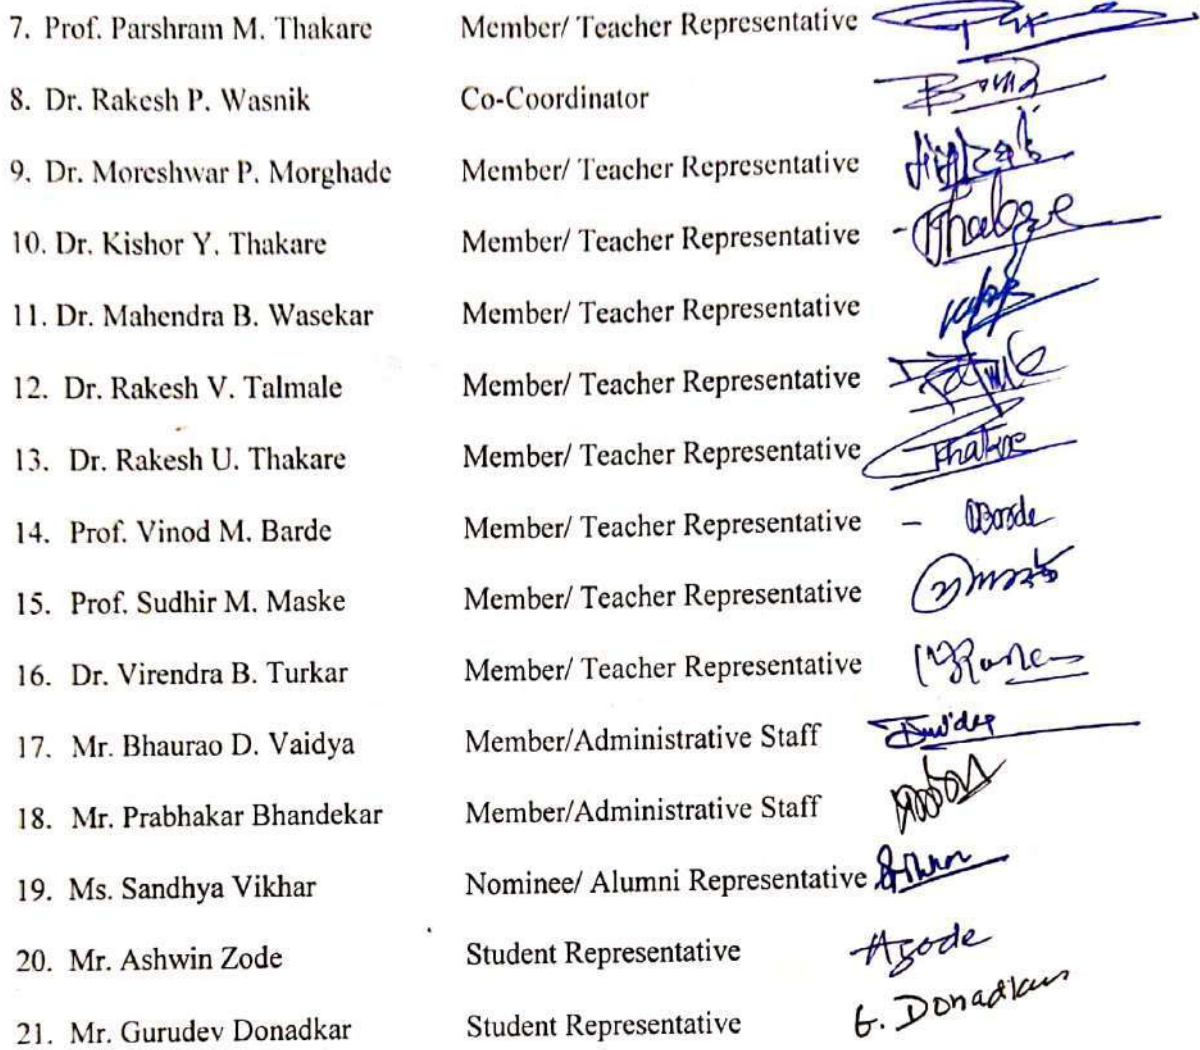 7. Prof. Parshram M. Thakare Member/ Teacher Representative
8. Dr. Rakesh P. Wasnik Co-Coordinator
9. Dr. Moreshwar P. Morghade Member/ Teacher Representative
10. Dr. Kishor Y. Thakare Member/ Teacher Representative
11. Dr. Mahendra B. Wasekar Member/ Teacher Representative
12. Dr. Rakesh V. Talmale Member/ Teacher Representative
13. Dr. Rakesh U. Thakare Member/ Teacher Representative
14. Prof. Vinod M. Barde Member/ Teacher Representative –
15. Prof. Sudhir M. Maske Member/ Teacher Representative
16. Dr. Virendra B. Turkar Member/ Teacher Representative
17. Mr. Bhaurao D. Vaidya Member/Administrative Staff
18. Mr. Prabhakar Bhandekar Member/Administrative Staff
19. Ms. Sandhya Vikhar Nominee/ Alumni Representative
20. Mr. Ashwin Zode Student Representative
21. Mr. Gurudev Donadkar Student Representative G. Donadkar